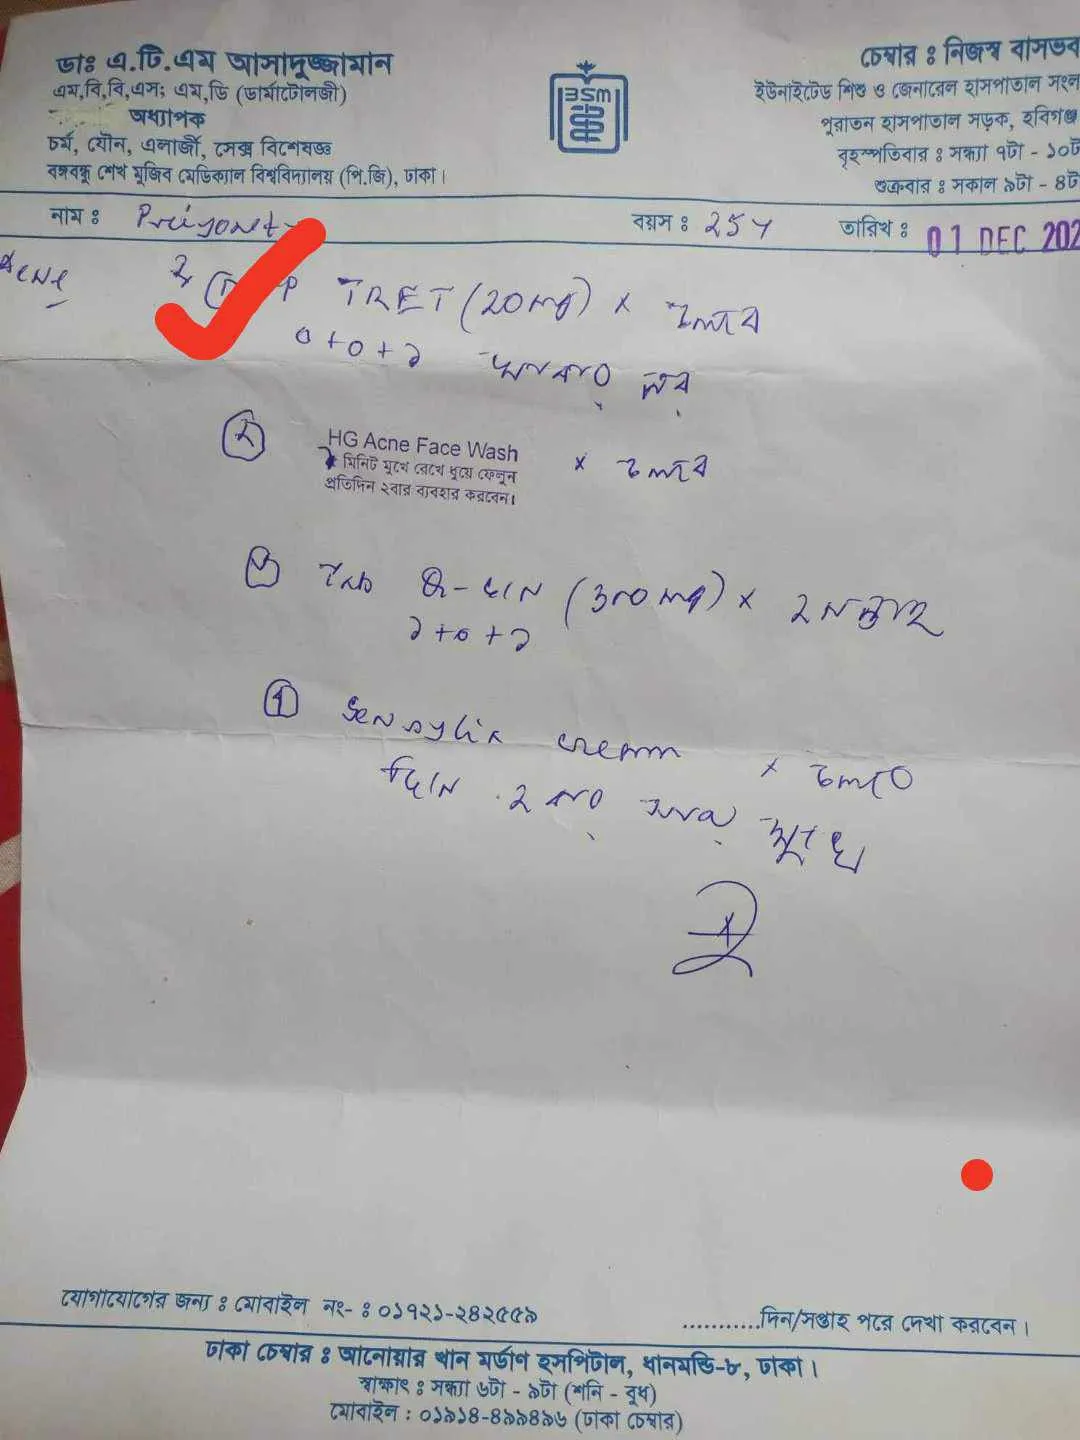 ডাঃ এ.টি.এম আসাদুজ্জামান
এম,বি,বি,এস; এম,ডি (ডার্মাটোলজী)
অধ্যাপক
চর্ম, যৌন, এলার্জী, সেক্স বিশেষজ্ঞ
বঙ্গবন্ধু শেখ মুজিব মেডিক্যাল বিশ্ববিদ্যালয় (পি.জি), ঢাকা।
BSM
চেম্বার ঃ নিজস্ব বাসভব
ইউনাইটেড শিশু ও জেনারেল হাসপাতাল সংল
পুরাতন হাসপাতাল সড়ক, হবিগঞ্জ
বৃহস্পতিবার ঃ সন্ধ্যা ৭টা - ১০ট
শুক্রবার ঃ সকাল ৯টা - ৪ট
নাম ঃ Priyont বয়স ঃ 25y তারিখ ঃ 01 DEC 202
Acne
TRET (20mg) × চলবে
০+০+১ খাবার পর
২ HG Acne Face Wash × চলবে
মিনিট মুখে রেখে ধুয়ে ফেলুন
প্রতিদিন ২বার ব্যবহার করবেন।
৩ (300mg) × ২ সপ্তাহ
১+০+১
cream × চলবে
দিনে ২ বার মুখে
যোগাযোগের জন্য ঃ মোবাইল নং- ঃ ০১৭২১-২৪২৫৫৯
...........দিন/সপ্তাহ পরে দেখা করবেন।
ঢাকা চেম্বার ঃ আনোয়ার খান মর্ডাণ হসপিটাল, ধানমন্ডি-৮, ঢাকা।
স্বাক্ষাৎ ঃ সন্ধ্যা ৬টা - ৯টা (শনি - বুধ)
মোবাইল : ০১৯১৪-৪৯৯৪৯৬ (ঢাকা চেম্বার)